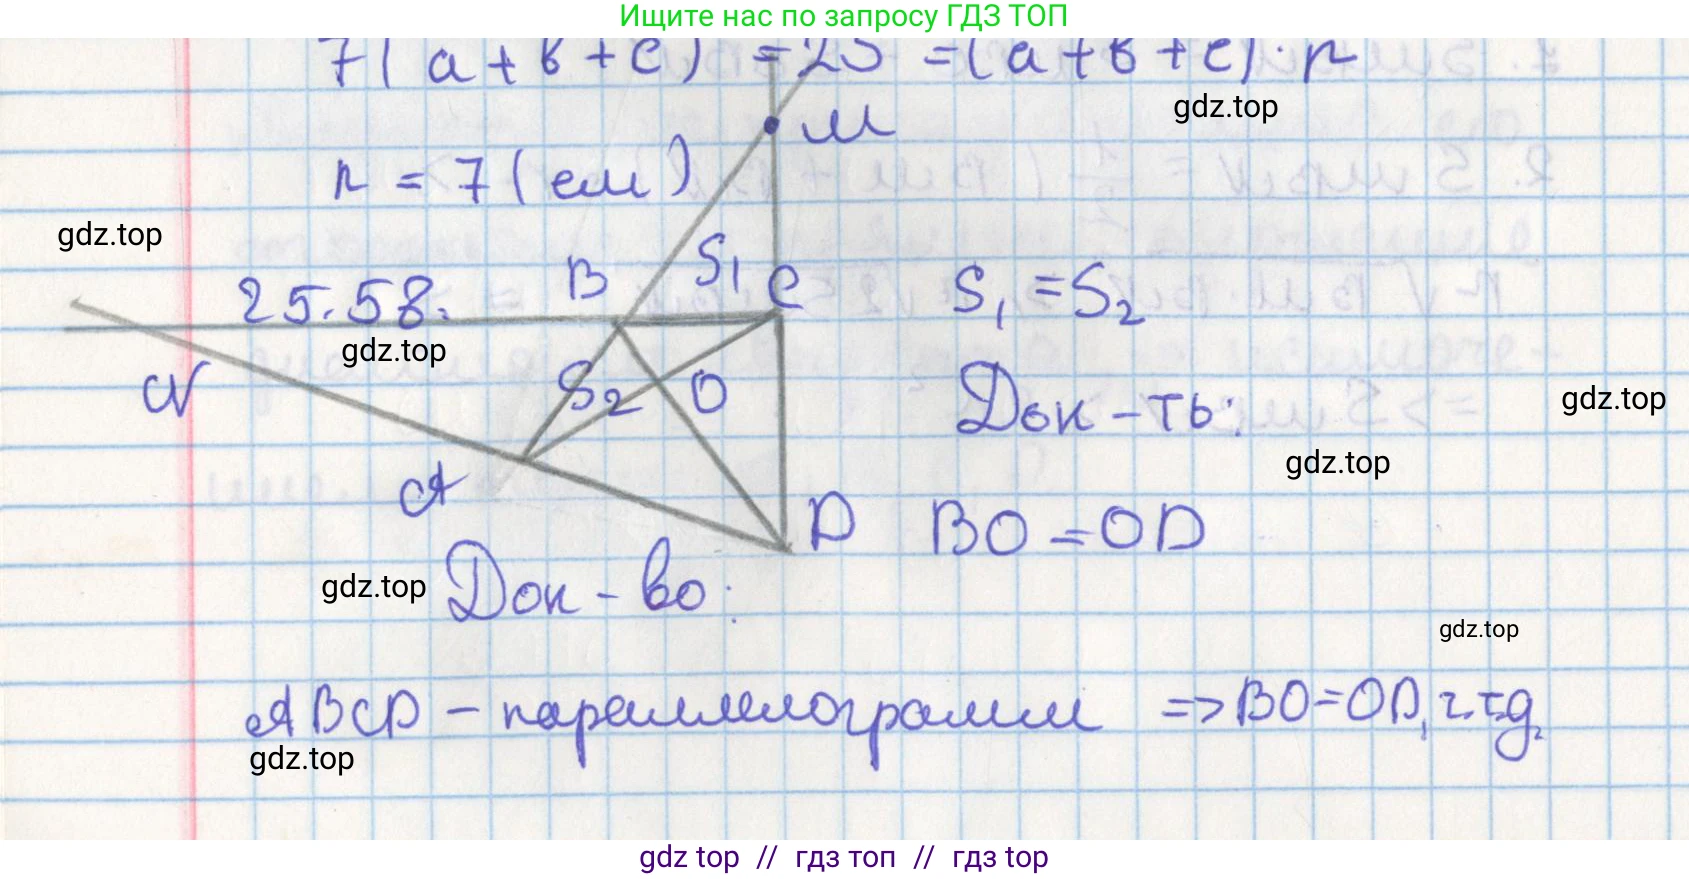 Ищите нас по запросу ГДЗ ТОП
7(a+b+c) = 2S = (a+b+c)·r
gdz.top
M
r = 7 (см)
gdz.top
25.58.
B
S₁
C
S₁ = S₂
gdz.top
N
S₂
O
Док-ть:
gdz.top
gdz.top
A
D
BO = OD
gdz.top
Док-во:
gdz.top
ABCD - параллелограмм => BO=OD, ч.т.д.
gdz.top
gdz top // гдз топ // гдз top